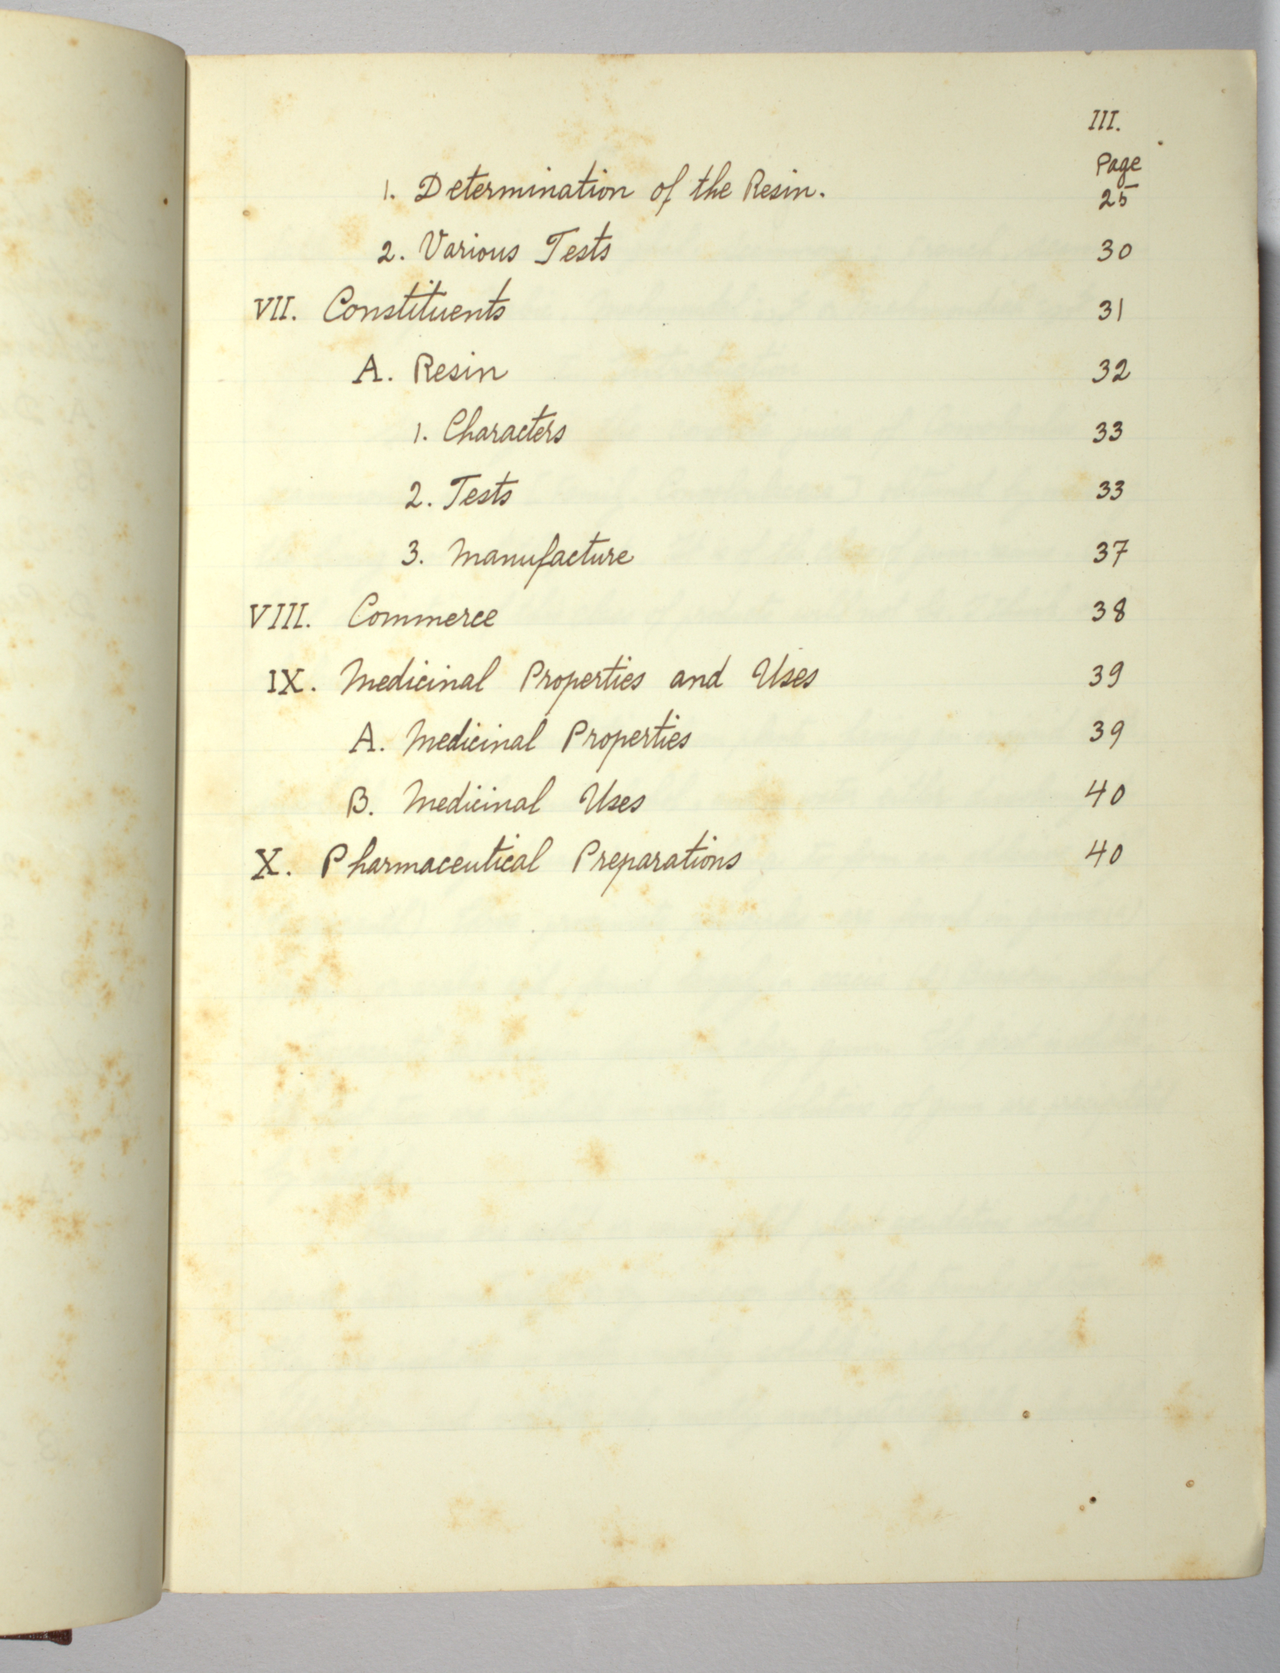 III.
Page
1. Determination of the Resin. 25
2. Various Tests 30
VII. Constituents 31
A. Resin 32
1. Characters 33
2. Tests 33
3. Manufacture 37
VIII. Commerce 38
IX. Medicinal Properties and Uses 39
A. Medicinal Properties 39
B. Medicinal Uses 40
X. Pharmaceutical Preparations 40